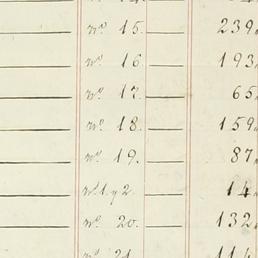 nº 15. 239
nº 16 193
nº 17. 65
nº 18. 159
nº 19. 87
nº 1. y 2 14
nº 20. 132
nº 21 114